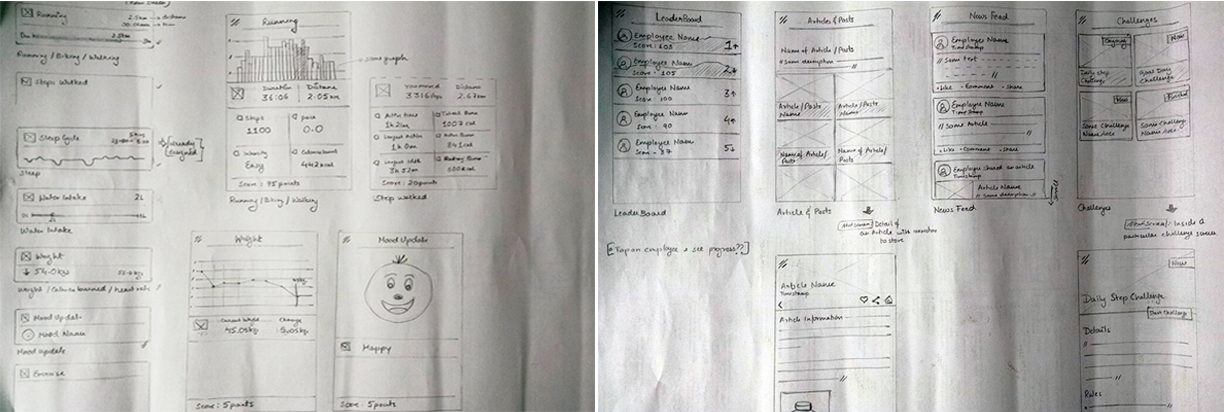 Running
2.5km
Running / Biking / Walking
Steps Walked
Sleep Cycle
Sleep
Water Intake 2L
Water Intake
Weight
54.0 kgs
Weight / Calories burned / heart rate
Mood Update
Mood Name
Mood Update
Exercise
Running
Duration
36:06
Distance
2.05km
same graph
Steps
1100
Pace
0-0
Intensity
Easy
Calories burned
442 cal
Score: 75 points
Running / Biking / Walking
Distance
2.67km
Active time
1h 21m
1h 0m
841 cal
Score: 20 points
Step Walked
Weight
Current Weight
45.05kg
Change
Score: 5 points
Mood Update
Happy
Score: 5 points
LeaderBoard
Employee Name
Score: 608
1
Employee Name
Score - 105
2
Employee Name
Score: 100
3
Employee Name
Score: 90
4
Employee Name
Score - 37
5
LeaderBoard
[* Tap on employee & see progress??]
Articles & Posts
Name of Article / Posts
// Some description //
Article / Posts Name
Article / Posts Name
Name of Article / Posts
Name of Article / Posts
Article & Posts
Next Screen Detail of
an Article with
to store
Article Name
Timestamp
Article Information
News Feed
Employee Name
Timestamp
// Some text
Like Comment Share
Employee Name
Timestamp
// Some Article
Like Comment Share
Employee shared an article
Timestamp
Article Name
// Some description //
Scroll
News Feed
Challenges
Ongoing
Daily Step
Challenge
New
Challenge
New
Some Challenge
Name
Some Challenge
Name
Challenges
Next Screen / Inside a
particular challenge screen
New
Daily Step Challenge
Start Challenge
Details
Rules